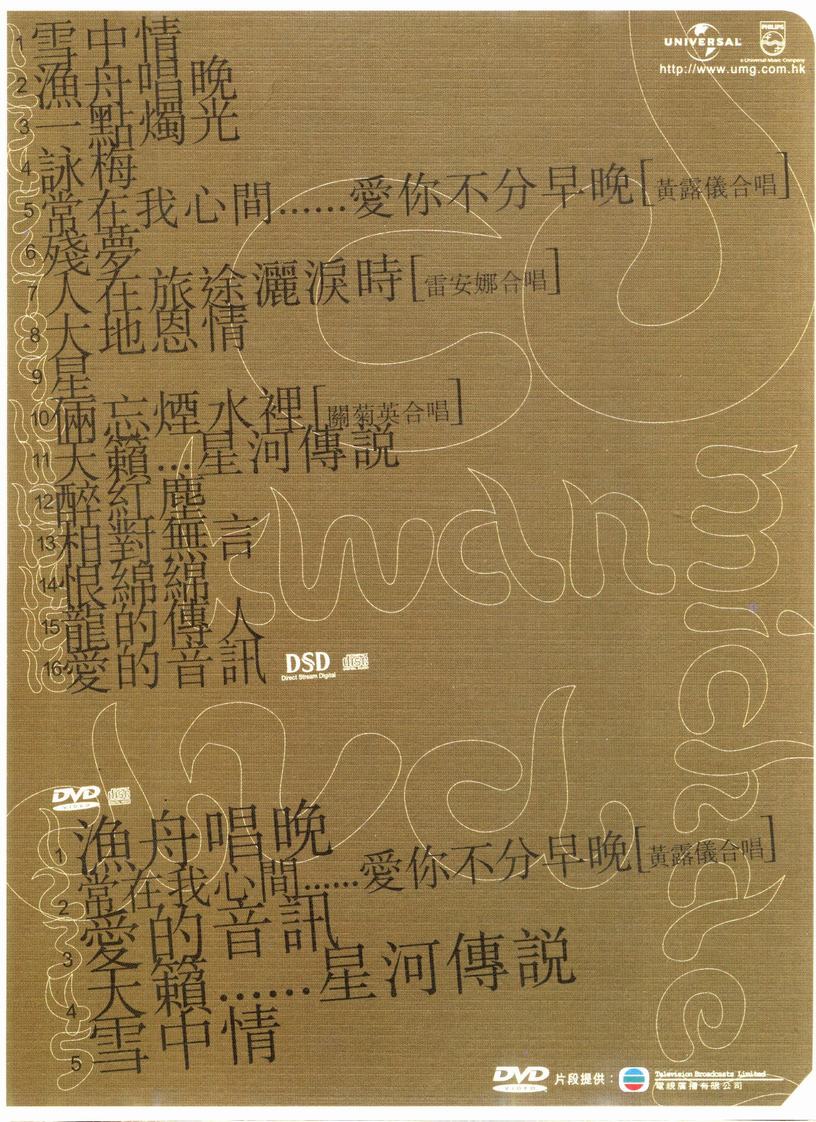 1 雪中情
2 漁舟唱晚
3 一點燭光
4 詠梅
5 常在我心間......愛你不分早晚[黃露儀合唱]
6 殘夢
7 人在旅途灑淚時[雷安娜合唱]
8 大地恩情
9 星
10 倆忘煙水裡[關菊英合唱]
11 天籟...星河傳説
12 醉紅塵
13 相對無言
14 恨綿綿
15 龍的傳人
16 愛的音訊
DSD
Direct Stream Digital
UNIVERSAL
PHILIPS
a Universal Music Company
http://www.umg.com.hk
kwan
michael
DVD
VIDEO
1 漁舟唱晚
2 常在我心間......愛你不分早晚[黃露儀合唱]
3 愛的音訊
4 天籟......星河傳説
5 雪中情
DVD
VIDEO
片段提供：
Television Broadcasts Limited
電視廣播有限公司